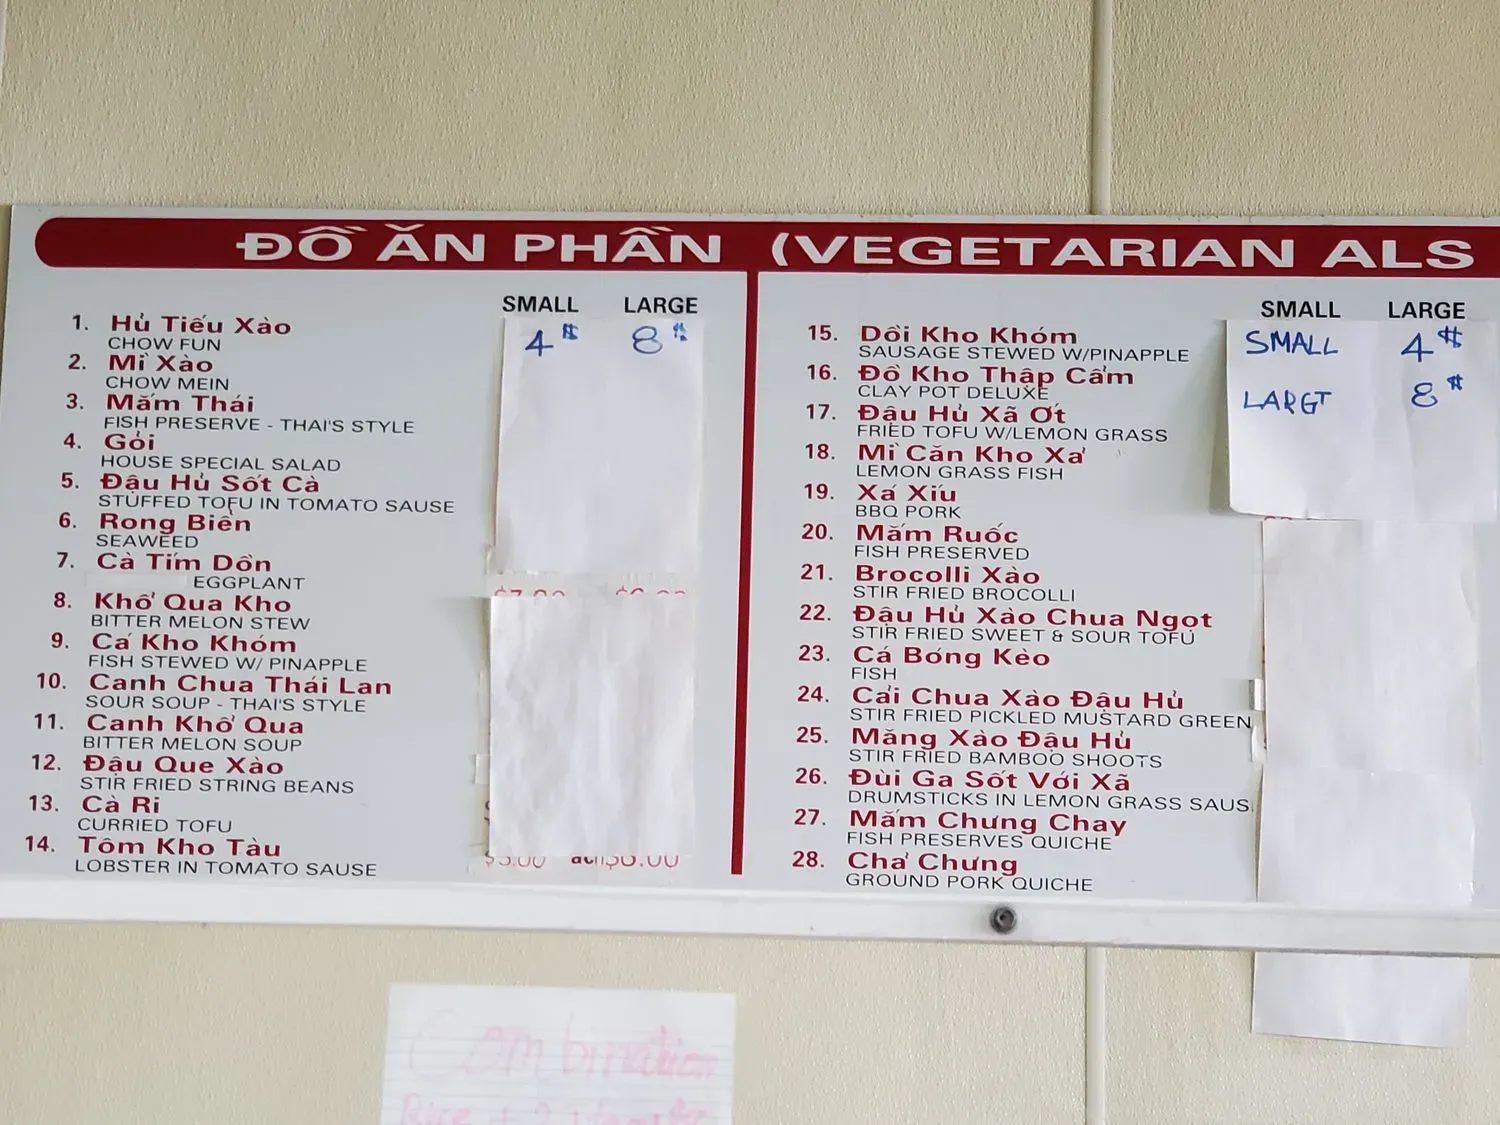 ĐỒ ĂN PHẦN (VEGETARIAN ALS
SMALL LARGE
4$ 8$
1. Hủ Tiếu Xào
CHOW FUN
2. Mì Xào
CHOW MEIN
3. Mắm Thái
FISH PRESERVE - THAI'S STYLE
4. Gỏi
HOUSE SPECIAL SALAD
5. Đậu Hủ Sốt Cà
STUFFED TOFU IN TOMATO SAUSE
6. Rong Biển
SEAWEED
7. Cà Tím Dồn
EGGPLANT
8. Khổ Qua Kho
BITTER MELON STEW
9. Cá Kho Khóm
FISH STEWED W/ PINAPPLE
10. Canh Chua Thái Lan
SOUR SOUP - THAI'S STYLE
11. Canh Khổ Qua
BITTER MELON SOUP
12. Đậu Que Xào
STIR FRIED STRING BEANS
13. Cà Ri
CURRIED TOFU
14. Tôm Kho Tàu
LOBSTER IN TOMATO SAUSE
SMALL LARGE
SMALL 4$
LARGT 8$
15. Dồi Kho Khóm
SAUSAGE STEWED W/PINAPPLE
16. Đồ Kho Thập Cẩm
CLAY POT DELUXE
17. Đậu Hủ Xã Ớt
FRIED TOFU W/LEMON GRASS
18. Mì Căn Kho Xả
LEMON GRASS FISH
19. Xá Xíu
BBQ PORK
20. Mắm Ruốc
FISH PRESERVED
21. Brocolli Xào
STIR FRIED BROCOLLI
22. Đậu Hủ Xào Chua Ngọt
STIR FRIED SWEET & SOUR TOFU
23. Cá Bóng Kèo
FISH
24. Cải Chua Xào Đậu Hủ
STIR FRIED PICKLED MUSTARD GREEN
25. Măng Xào Đậu Hủ
STIR FRIED BAMBOO SHOOTS
26. Đùi Ga Sốt Với Xã
DRUMSTICKS IN LEMON GRASS SAUS
27. Mắm Chưng Chay
FISH PRESERVES QUICHE
28. Chả Chưng
GROUND PORK QUICHE
Combination